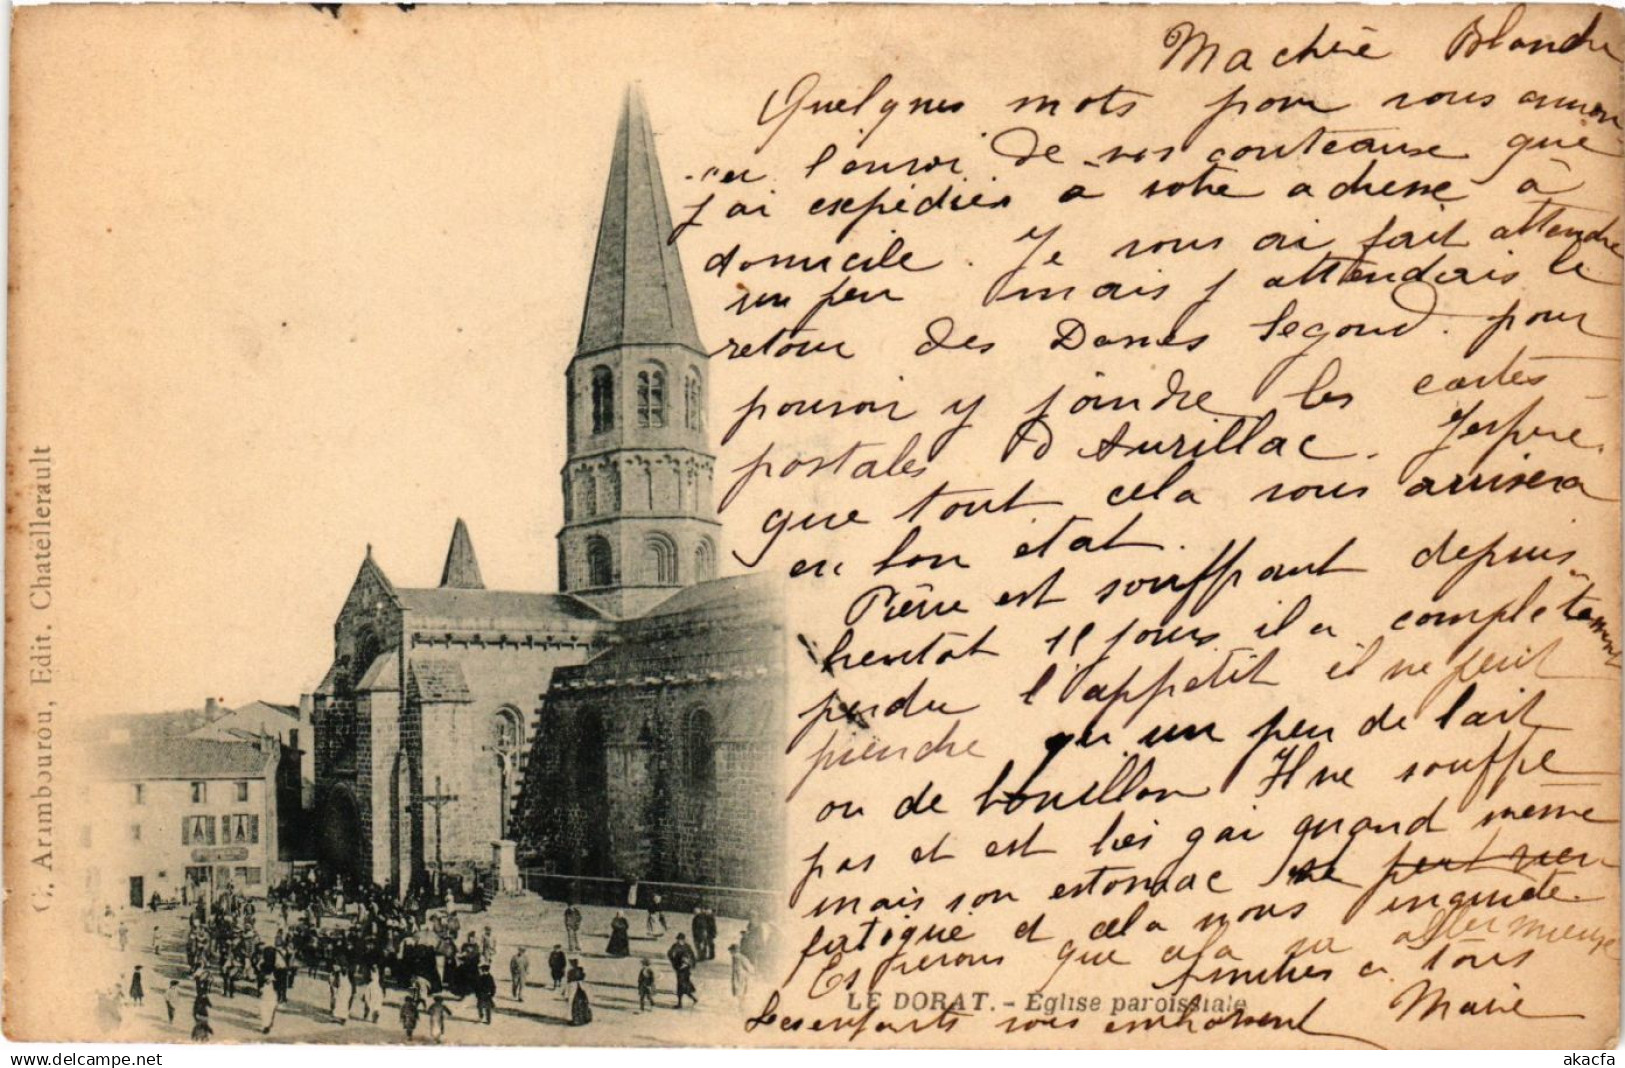 Ma chère Blanche
Quelques mots pour vous annon
cer l'envoi de vos couteaux que
j'ai expédiés à votre adresse à
domicile. Je vous ai fait attendre
un peu mais j'attendais le
retour des Dames Segond. pour
pouvoir y joindre les cartes
postales d'Aurillac. J'espère
que tout cela vous arrivera
en bon état.
Pierre est souffrant depuis
bientot 15 jours il a complètement
perdu l'appetit il ne peut
prendre qu'un peu de lait
ou de bouillon Il ne souffre
pas et est très gai quand même
mais son estomac ne peut rien
fatigué et cela nous inquiète.
Espérons que cela va aller mieux
Amitiés à tous
Les enfants vous embrassent Marie
LE DORAT. - Eglise paroissiale
C. Arambourou, Edit. Chatellerault
akacfa
www.delcampe.net